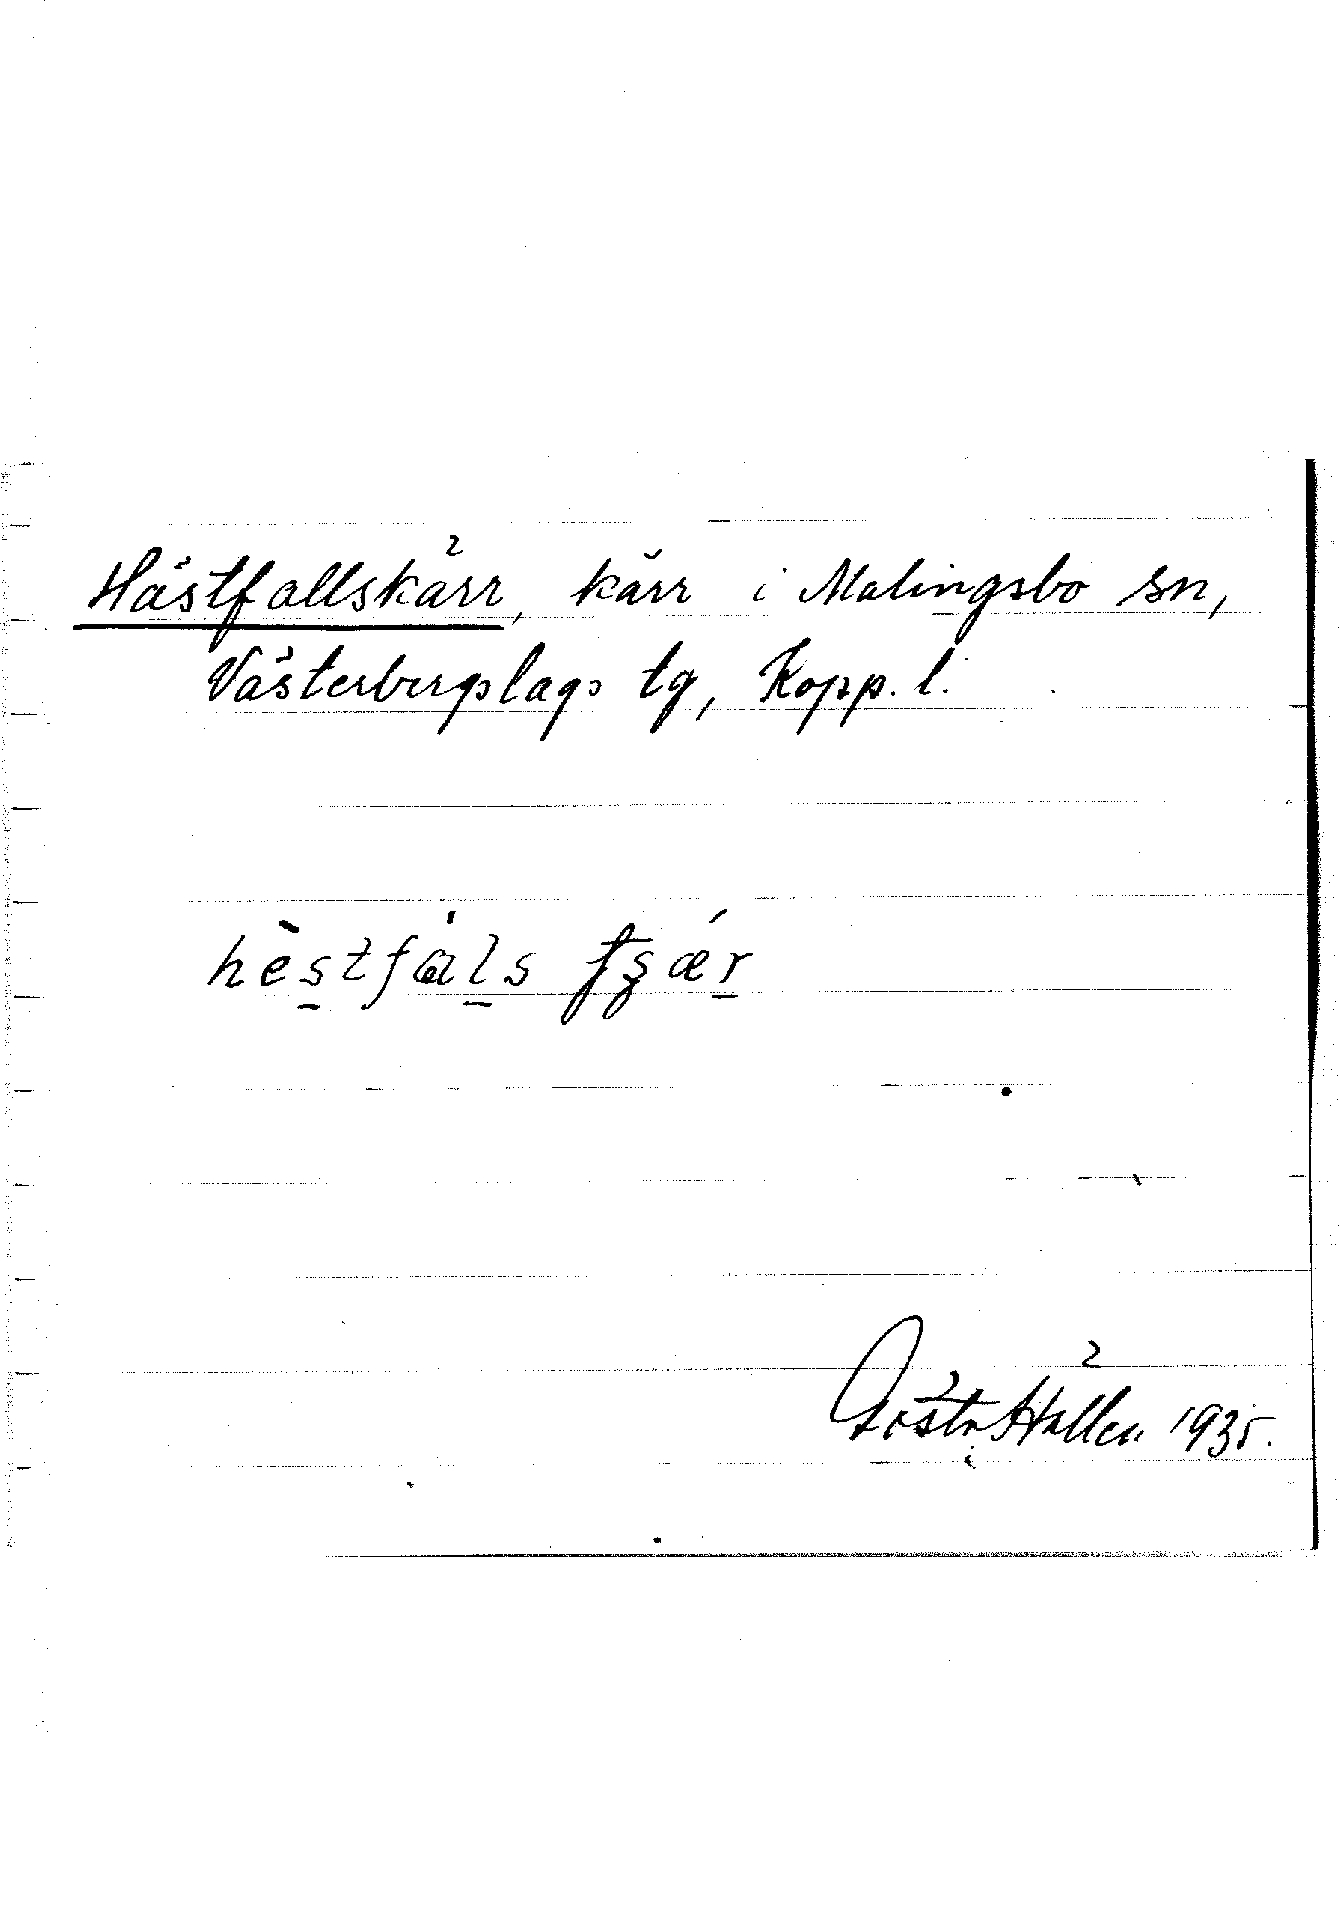 Hästfallskärr, kärr i Malingsbo sn,
Västerbergslags tg, Kopp. l.
hèstfáls tʂǽr
Gösta Hallén 1935.